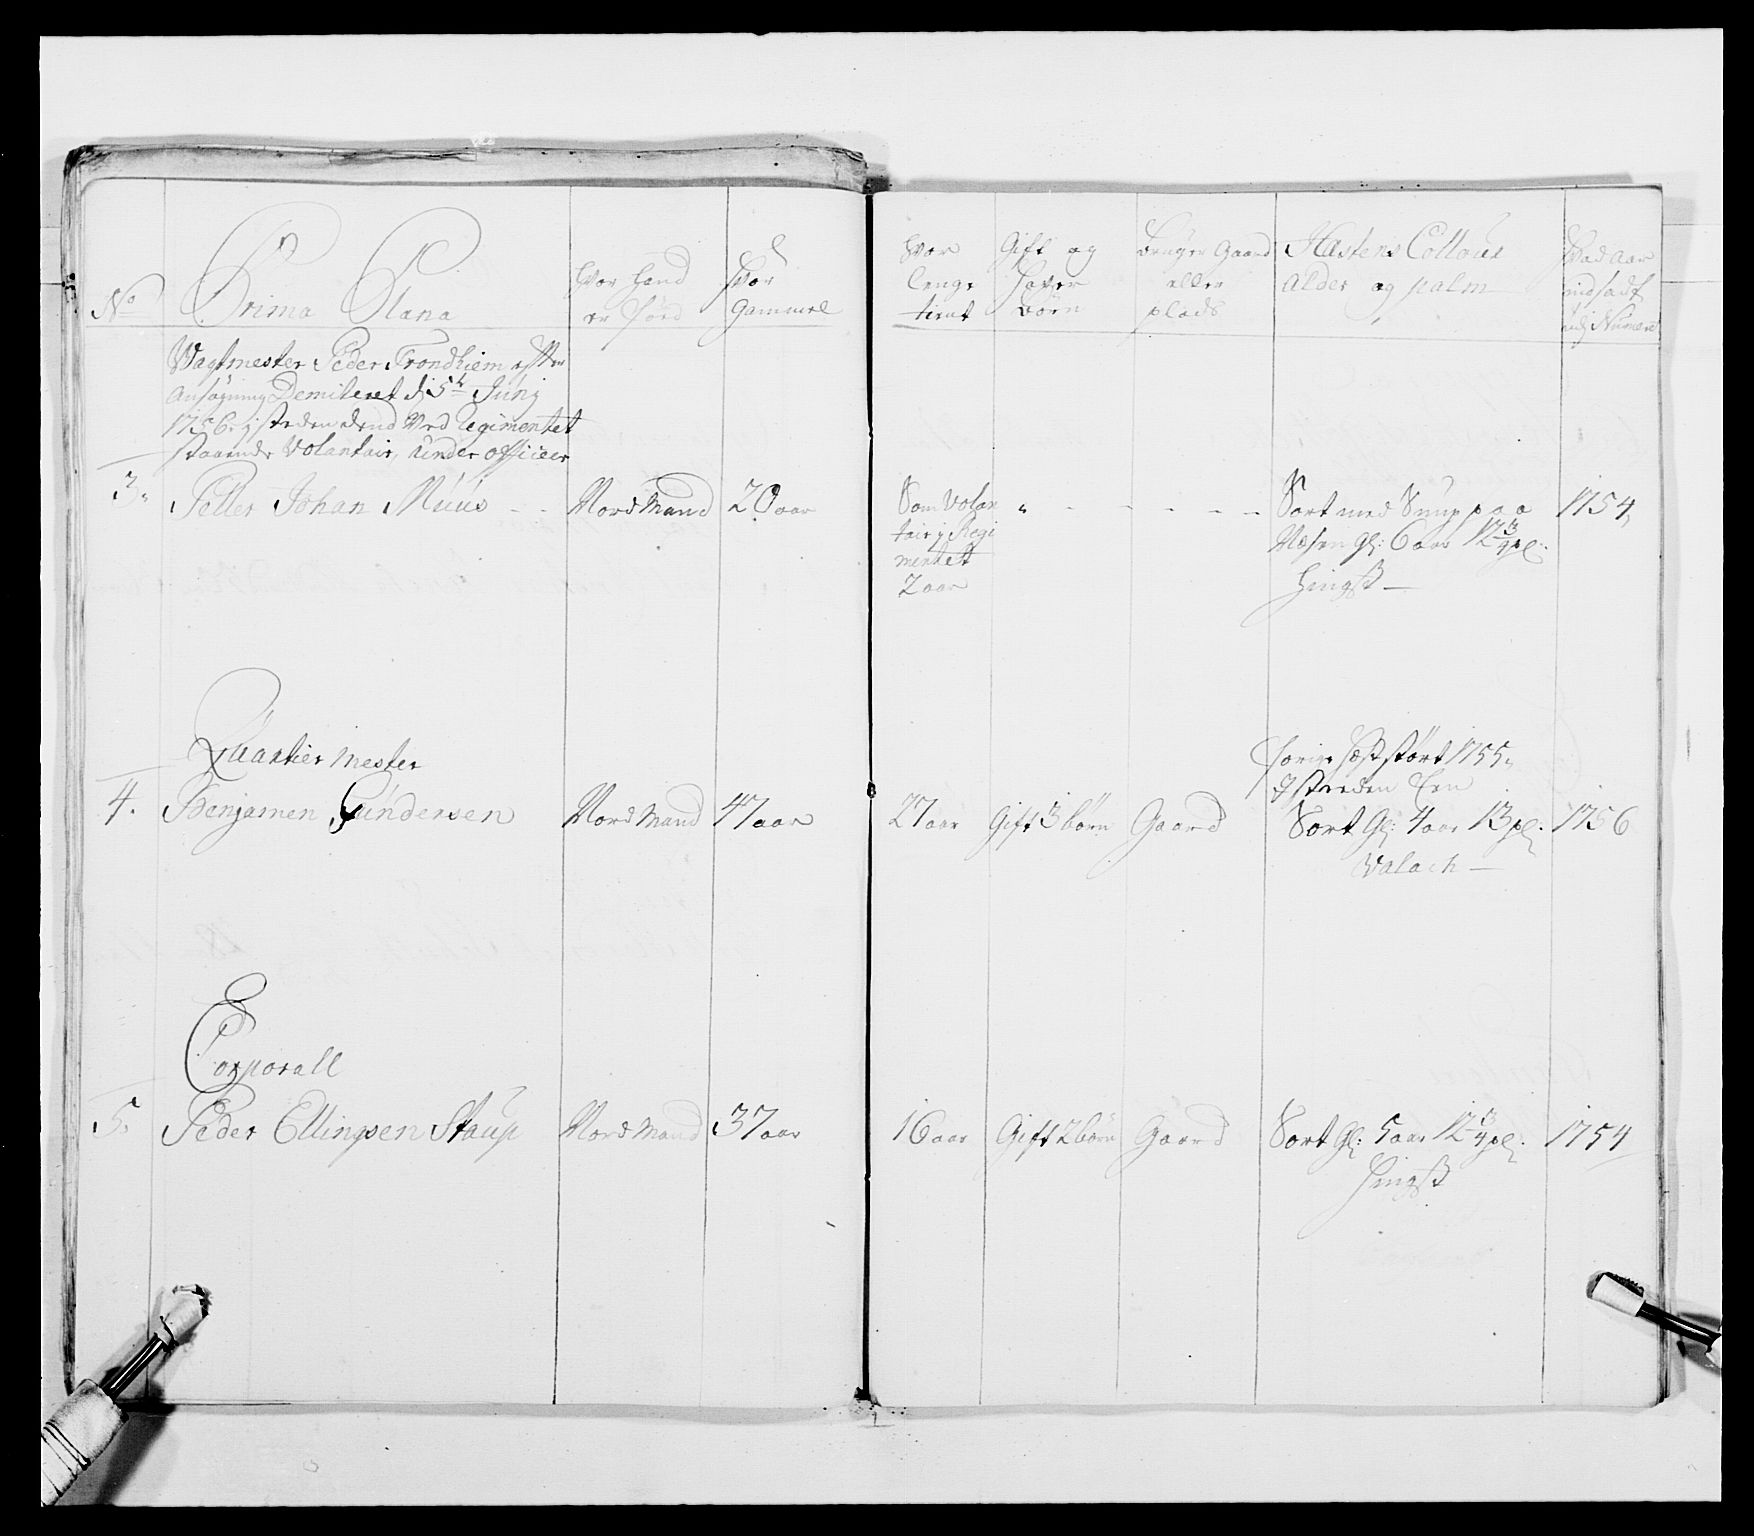 No
Prima Plana
Hvor Hand
er Föed
Hvor
Gammel
Hvor
lenge
tient
Gift og
Haver
Börn
Bruger Gaard
eller
plads
Hæstens Collour
Alder og palm
Hvad Aar
indsadt
udj Numeret
Wagtmester Peder Trondhiem efter
ansögning Demiteret d: 5t Junj
1756. j steden dend Ved Regimentet
staaende Volantair, under officeer
3. Peller Johan Muus - - Nord Mand 20 aar
Som Volan
tair j Regi
mentet
2 aar
" - - - - -
Sort med Snup paa
Næsen Gl: 6 aar 12 3/4 pl:
Hingst —
1754,
Quartier Mester
4. Benjamen Gundersen Nord Mand 47 aar 27 aar Gift 3 börn Gaard
forige Hæst stört 1755,
J steden Een
Sort Gl: 4 aar 13 pl:
Valach —
1756
Corporall
5. Peder Ellingsen Staup Nord Mand 37 aar 16 aar Gift 2 börn Gaard Sort Gl: 5 aar 12 3/4 pl: 1754
Hingst